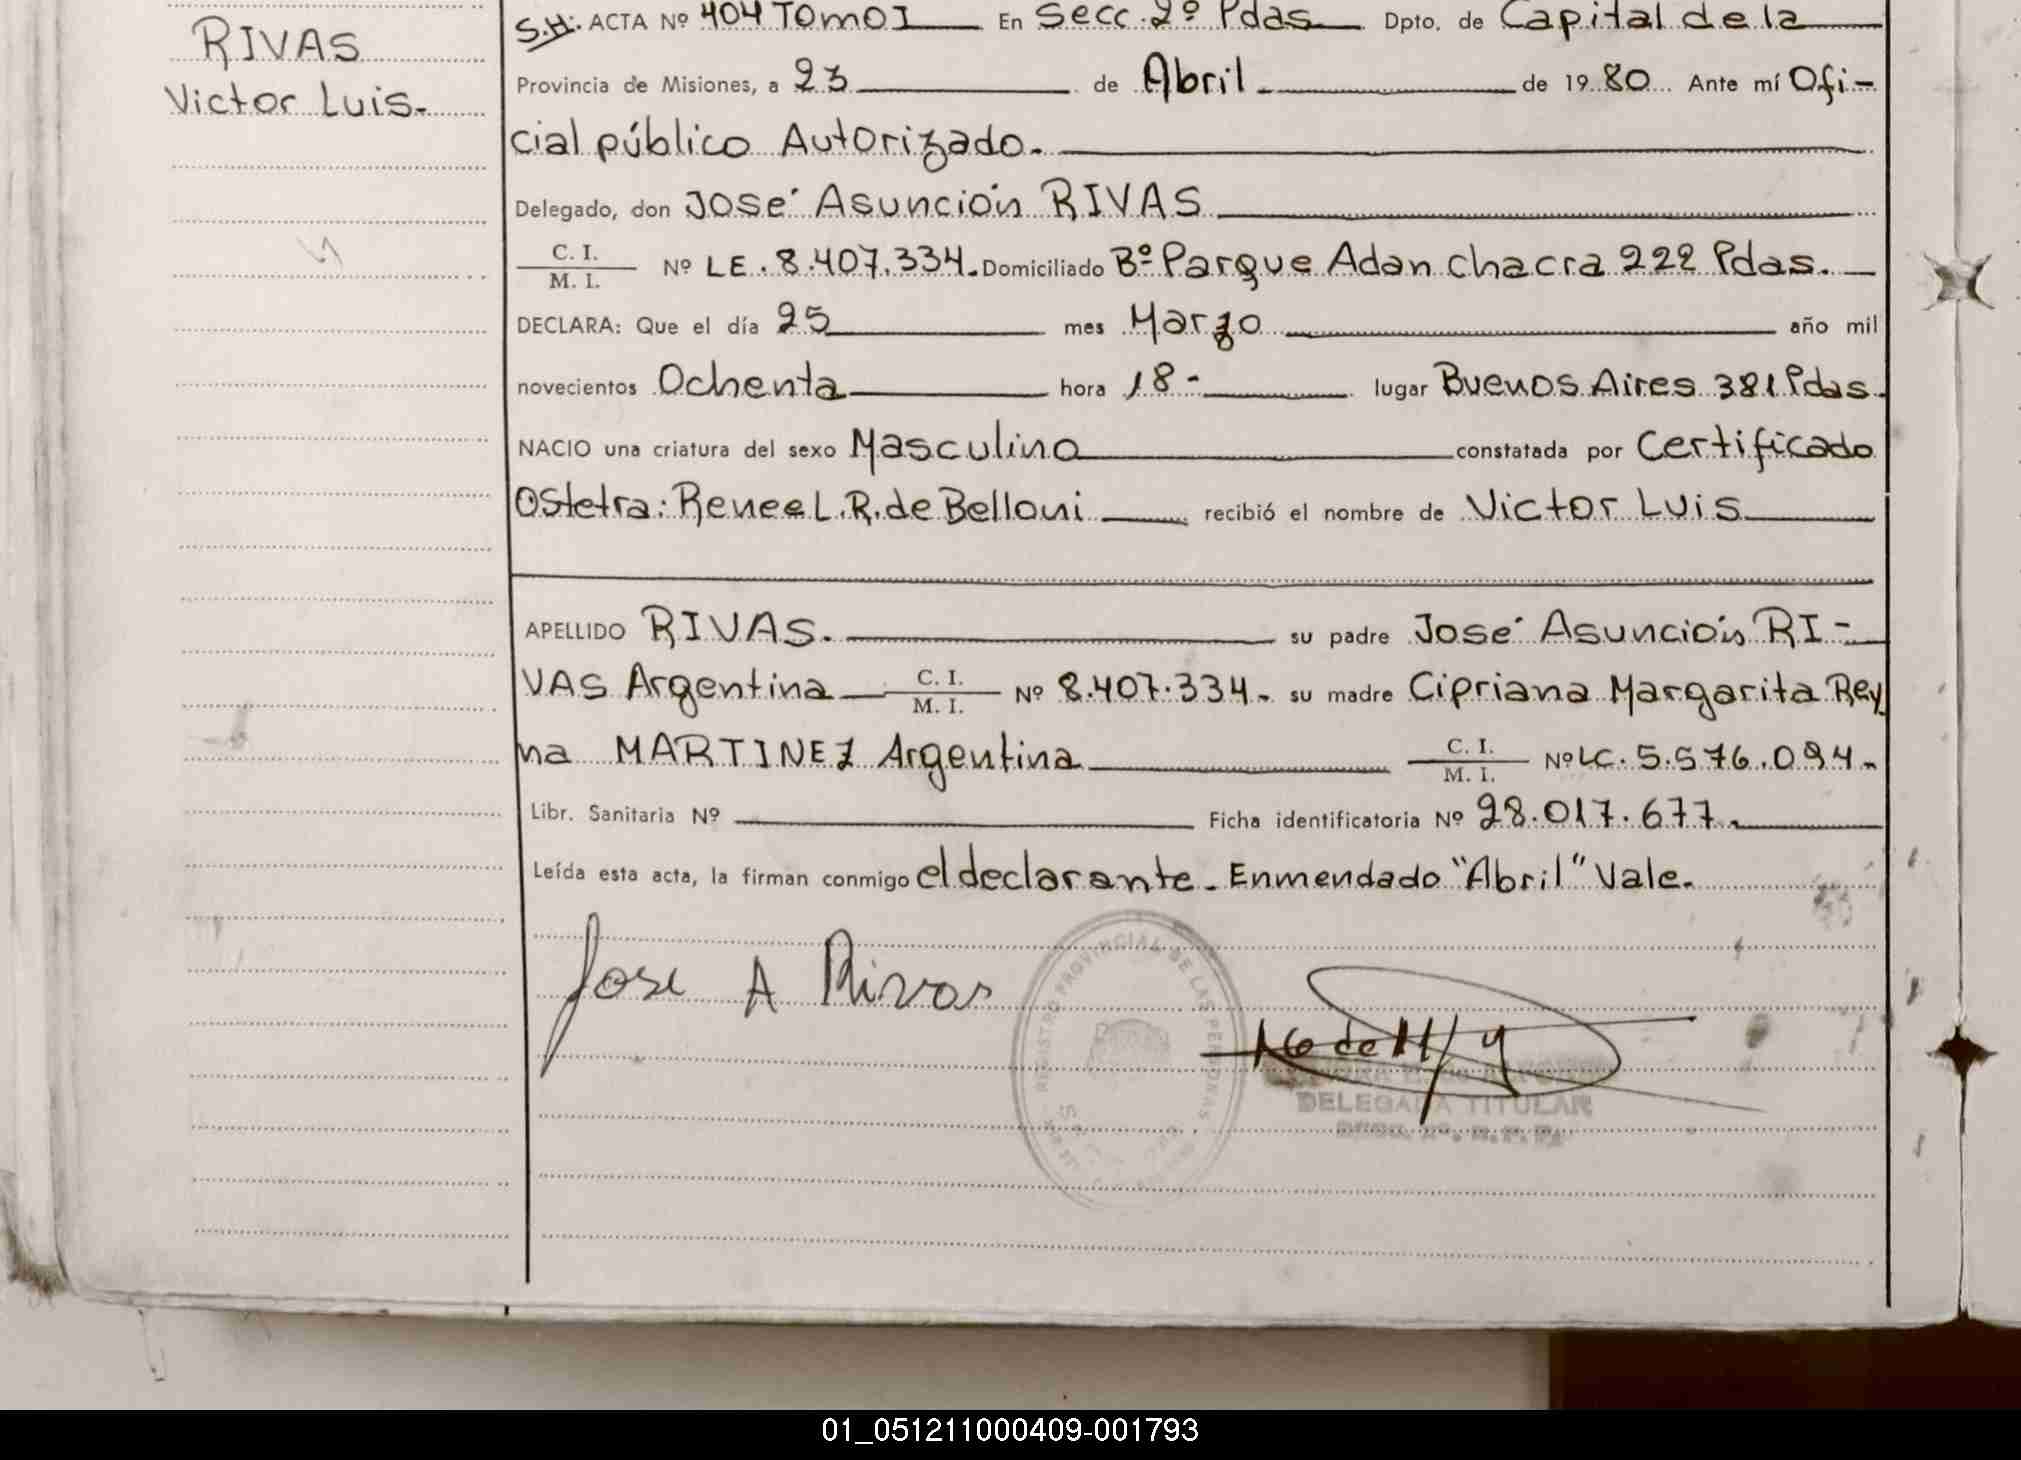 RIVAS
Victor Luis.-
S.H: ACTA Nº 404 Tomo I En Secc. 2º Pdas Dpto. de Capital de la
Provincia de Misiones, a 23 de Abril de 1980 Ante mí Ofi-
cial público Autorizado.-
Delegado, don José Asunción RIVAS
C. I.
M. I. Nº LE. 8.407.334. Domiciliado Bº Parque Adan chacra 222 Pdas.
DECLARA: Que el día 25 mes Marzo año mil
novecientos Ochenta hora 18- lugar Buenos Aires 381 Pdas.
NACIO una criatura del sexo Masculino constatada por Certificado
Ostetra: Renee L. R. de Belloni recibió el nombre de Victor Luis
APELLIDO RIVAS. su padre José Asunción RI-
VAS Argentina C. I.
M. I. Nº 8.407.334- su madre Cipriana Margarita Rey
na MARTINEZ Argentina C. I.
M. I. Nº LC. 5.576.094-
Libr. Sanitaria Nº Ficha identificatoria Nº 28.017.677.
Leída esta acta, la firman conmigo el declarante. Enmendado "Abril" Vale.
Jose A Rivas
REGISTRO PROVINCIAL DE LAS PERSONAS
DELEGADA TITULAR
01_051211000409-001793